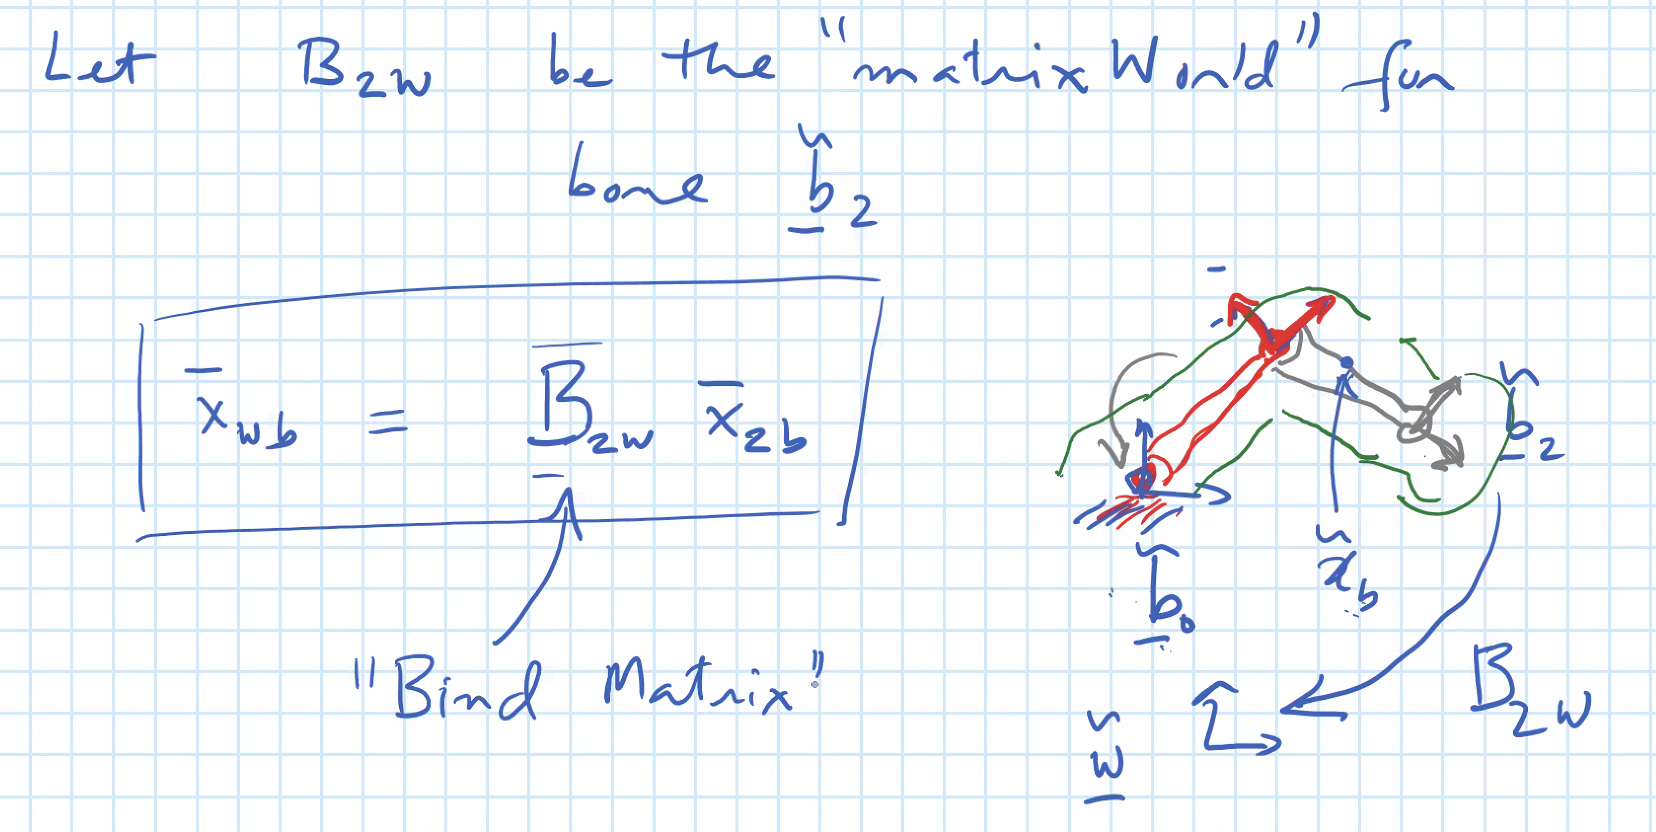 Let B₂w be the "matrixWorld" for
bone b̃₂
x̄wb = B̄₂w x̄₂b
"Bind Matrix"
b̃₂
b̃₀
x̃b
w̃
B₂w